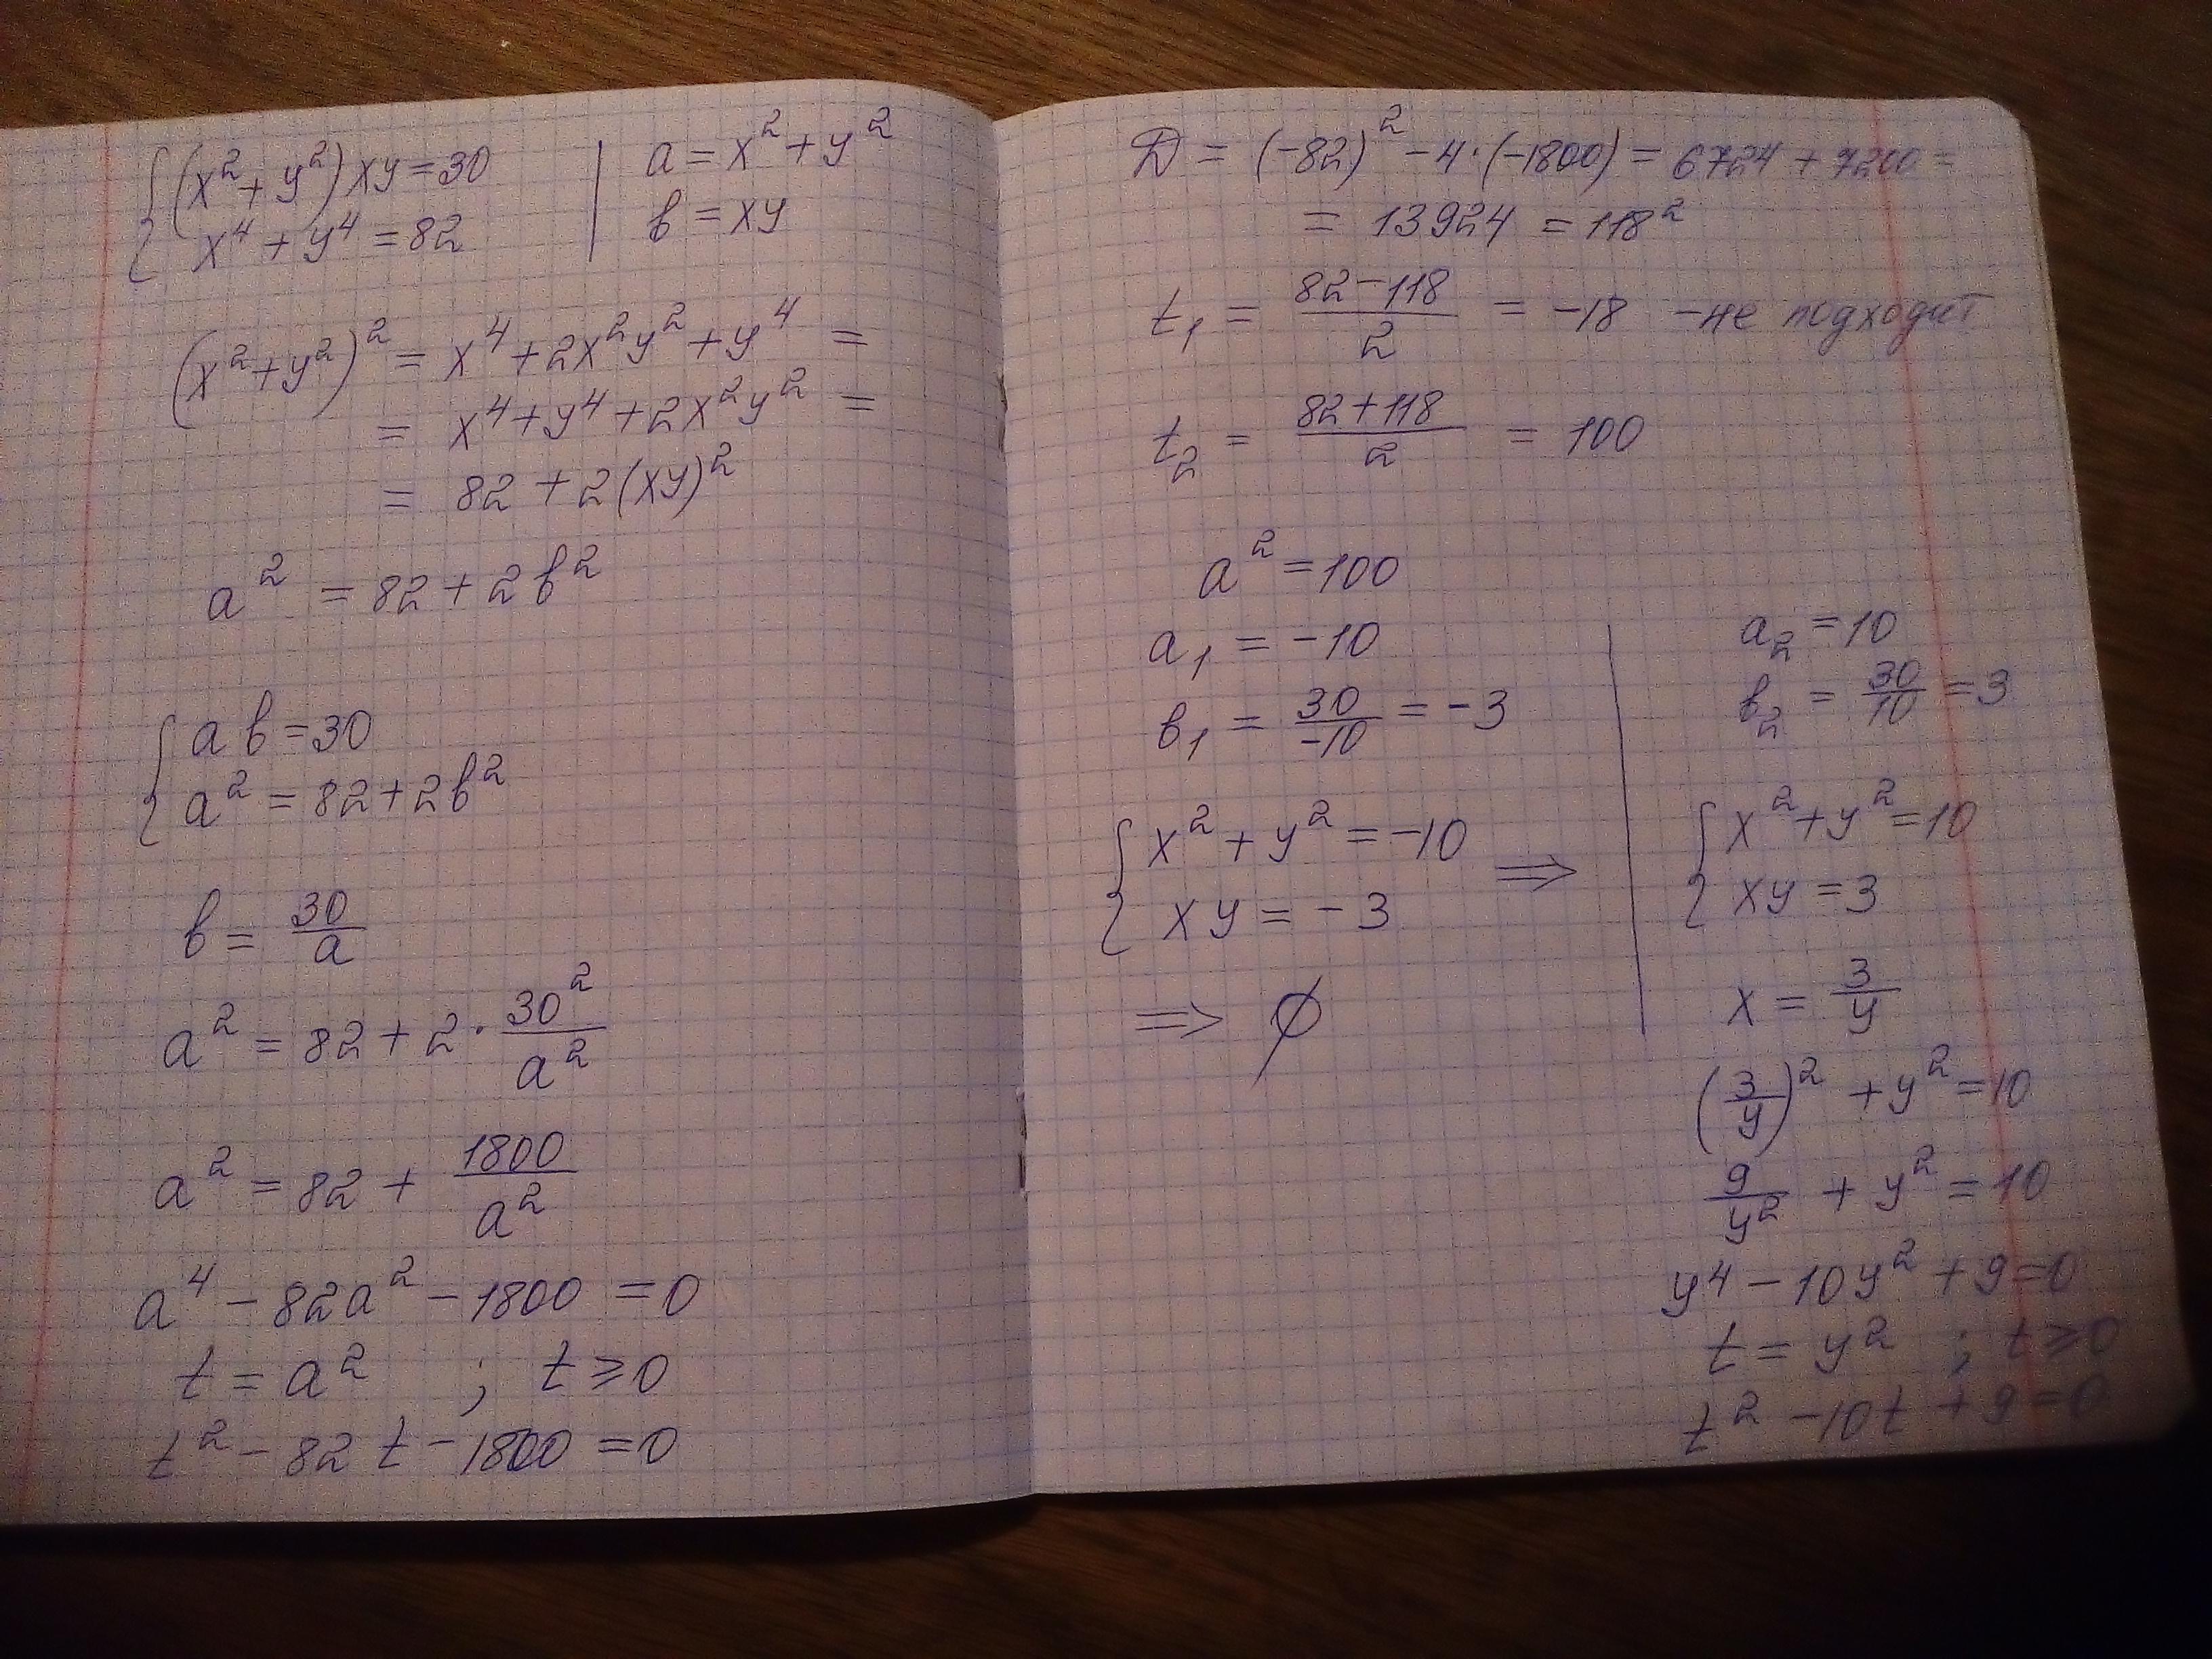 { (x² + y²) xy = 30 | a = x² + y²
{ x⁴ + y⁴ = 82 | b = xy
(x² + y²)² = x⁴ + 2x²y² + y⁴ =
= x⁴ + y⁴ + 2x²y² =
= 82 + 2(xy)²
a² = 82 + 2b²
{ ab = 30
{ a² = 82 + 2b²
b = 30/a
a² = 82 + 2 · 30²/a²
a² = 82 + 1800/a²
a⁴ - 82a² - 1800 = 0
t = a² ; t ≥ 0
t² - 82t - 1800 = 0
D = (-82)² - 4·(-1800) = 6724 + 7200 =
= 13924 = 118²
t₁ = (82-118)/2 = -18 - не подходит
t₂ = (82+118)/2 = 100
a² = 100
a₁ = -10
b₁ = 30/-10 = -3
{ x² + y² = -10 ⇒
{ xy = -3
⇒ ∅
a₂ = 10
b₂ = 30/10 = 3
{ x² + y² = 10
{ xy = 3
x = 3/y
(3/y)² + y² = 10
9/y² + y² = 10
y⁴ - 10y² + 9 = 0
t = y² ; t ≥ 0
t² - 10t + 9 = 0